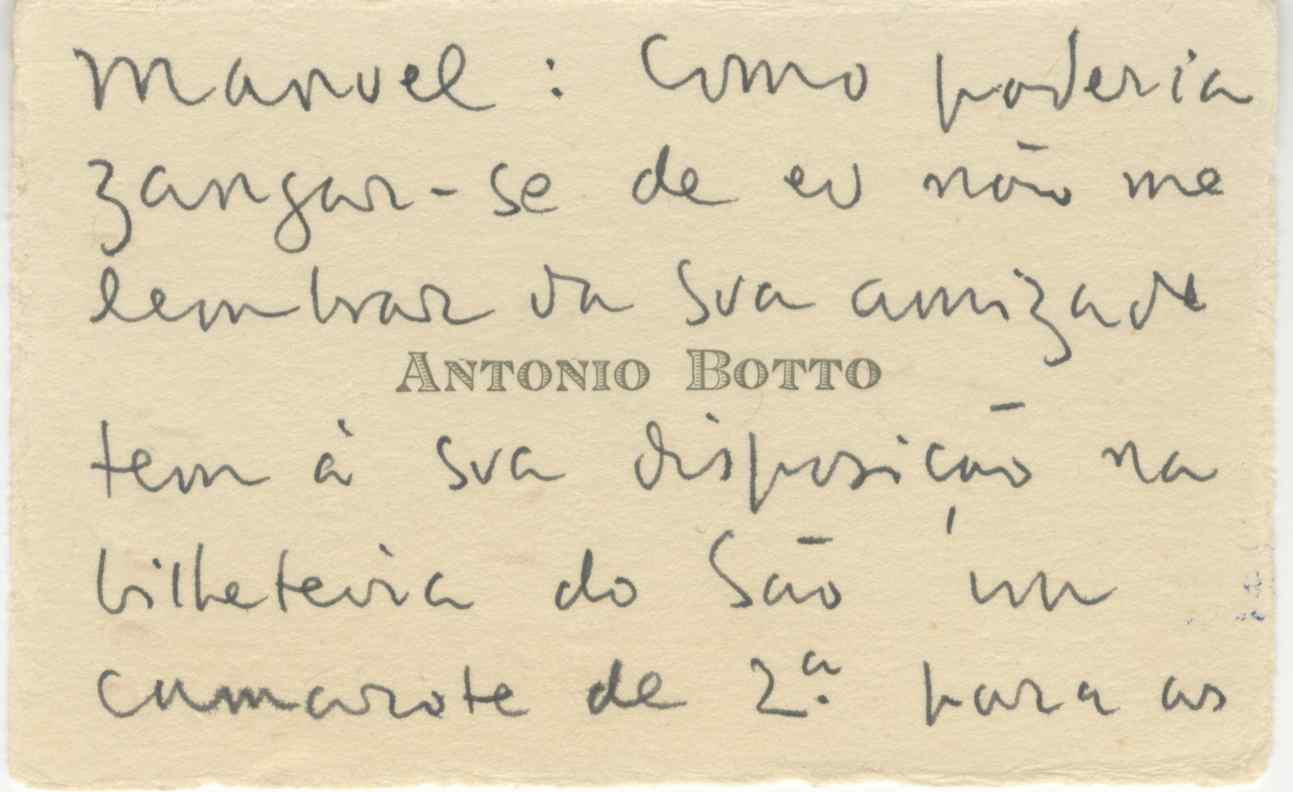 Manuel: Como poderia
zangar-se de eu não me
lembrar da sua amizade
ANTONIO BOTTO
tem à sua disposição na
bilheteira do São um
camarote de 2.ª para as